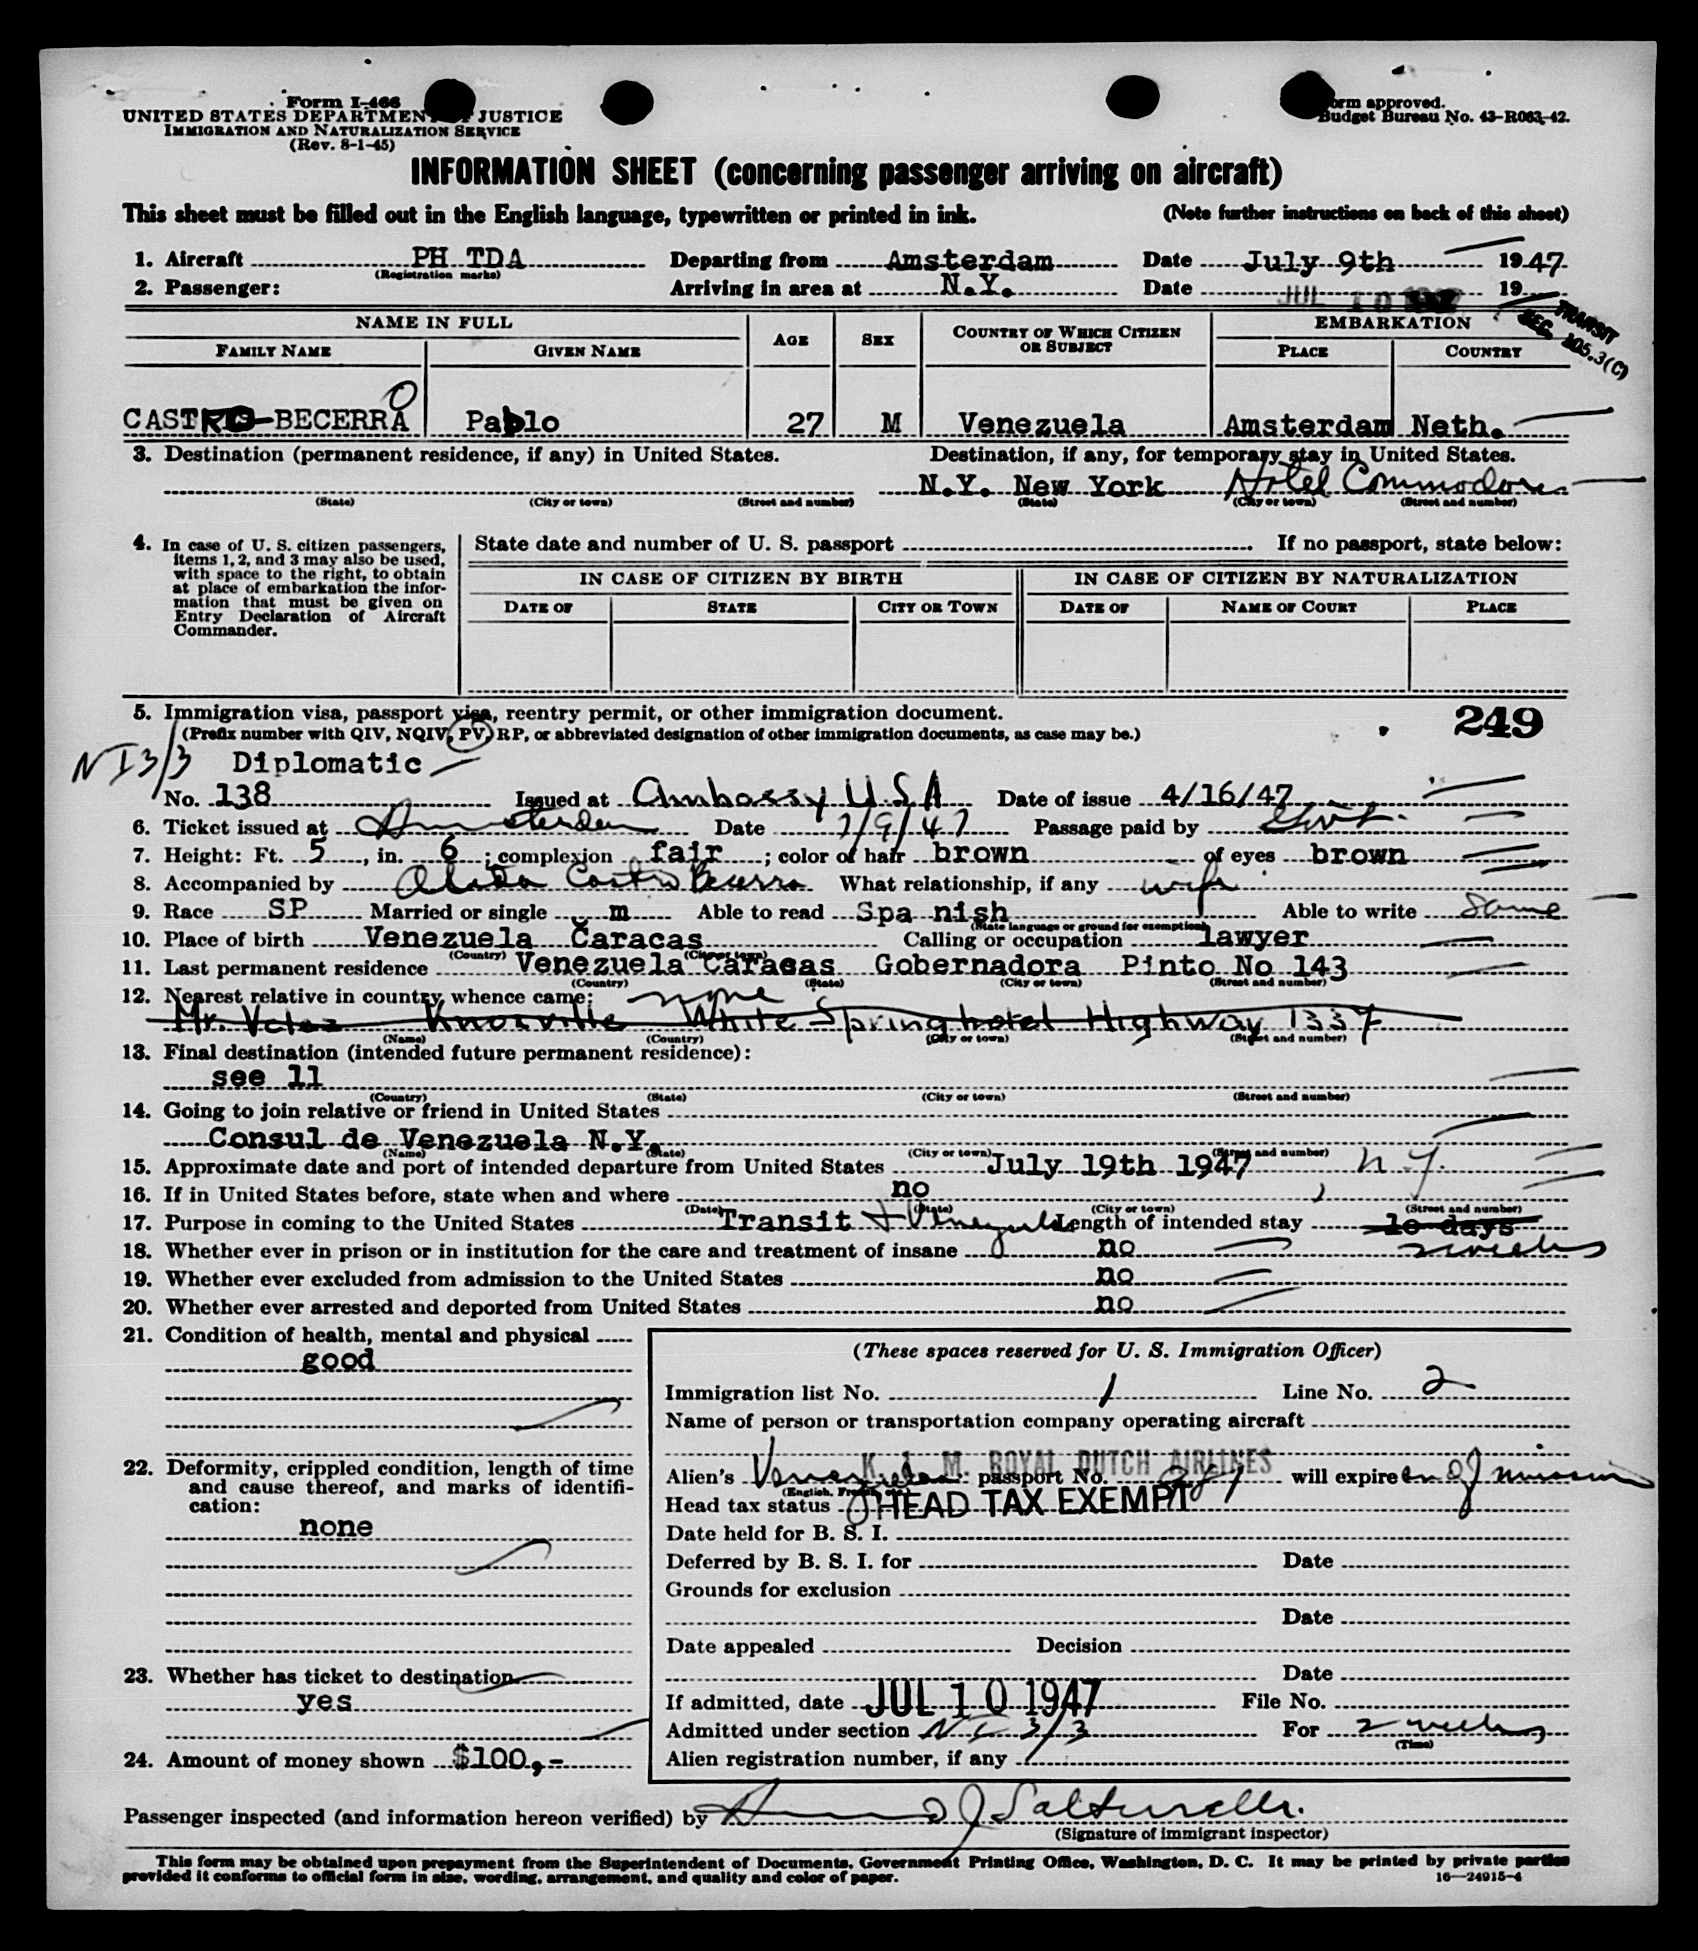 Form I-466
UNITED STATES DEPARTMENT OF JUSTICE
IMMIGRATION AND NATURALIZATION SERVICE
(Rev. 8-1-45)
Form approved.
Budget Bureau No. 43-R063-42.
INFORMATION SHEET (concerning passenger arriving on aircraft)
This sheet must be filled out in the English language, typewritten or printed in ink. (Note further instructions on back of this sheet)
1. Aircraft PH TDA Departing from Amsterdam Date July 9th 1947
(Registration marks)
2. Passenger: Arriving in area at N.Y. Date JUL 10 1947 19
TRANSIT
SEC. 105.3(C)
NAME IN FULL AGE SEX COUNTRY OF WHICH CITIZEN OR SUBJECT EMBARKATION
FAMILY NAME GIVEN NAME PLACE COUNTRY
CASTRO-BECERRA Pablo 27 M Venezuela Amsterdam Neth.
3. Destination (permanent residence, if any) in United States. Destination, if any, for temporary stay in United States.
N.Y. New York Hotel Commodore
(State) (City or town) (Street and number) (State) (City or town) (Street and number)
4. In case of U. S. citizen passengers, items 1, 2, and 3 may also be used, with space to the right, to obtain at place of embarkation the information that must be given on Entry Declaration of Aircraft Commander.
State date and number of U. S. passport If no passport, state below:
IN CASE OF CITIZEN BY BIRTH IN CASE OF CITIZEN BY NATURALIZATION
DATE OF STATE CITY OR TOWN DATE OF NAME OF COURT PLACE
5. Immigration visa, passport visa, reentry permit, or other immigration document. 249
(Prefix number with QIV, NQIV, PV, RP, or abbreviated designation of other immigration documents, as case may be.)
NI 3/3 Diplomatic
No. 138 Issued at Ambassy USA Date of issue 4/16/47
6. Ticket issued at Amsterdam Date 7/9/47 Passage paid by Govt.
7. Height: Ft. 5, in. 6; complexion fair; color of hair brown of eyes brown
8. Accompanied by Alida Castro Becerra What relationship, if any wife
9. Race SP Married or single m Able to read Spa nish Able to write Same
(State language or ground for exemption)
10. Place of birth Venezuela Caracas Calling or occupation lawyer
(Country) (City or town)
11. Last permanent residence Venezuela Caracas Gobernadora Pinto No 143
(Country) (State) (City or town) (Street and number)
12. Nearest relative in country whence came: none
Mr. Velez Knoxville White Spring hotel Highway 1337
(Name) (Country) (City or town) (Street and number)
13. Final destination (intended future permanent residence):
see 11
(Country) (State) (City or town) (Street and number)
14. Going to join relative or friend in United States
Consul de Venezuela N.Y.
(Name) (State) (City or town) (Street and number)
15. Approximate date and port of intended departure from United States July 19th 1947 N.Y.
16. If in United States before, state when and where no
(Date) (State) (City or town) (Street and number)
17. Purpose in coming to the United States Transit to Venezuela Length of intended stay 10 days
2 weeks
18. Whether ever in prison or in institution for the care and treatment of insane no
19. Whether ever excluded from admission to the United States no
20. Whether ever arrested and deported from United States no
21. Condition of health, mental and physical
good
22. Deformity, crippled condition, length of time and cause thereof, and marks of identification:
none
23. Whether has ticket to destination
yes
24. Amount of money shown $100,-
(These spaces reserved for U. S. Immigration Officer)
Immigration list No. 1 Line No. 2
Name of person or transportation company operating aircraft
K. L. M. ROYAL DUTCH AIRLINES
Alien's Venezuelan passport No. will expire
(English, French, etc.)
Head tax status HEAD TAX EXEMPT
Date held for B. S. I.
Deferred by B. S. I. for Date
Grounds for exclusion
Date
Date appealed Decision
Date
If admitted, date JUL 10 1947 File No.
Admitted under section NI 3/3 For 2 weeks
(Time)
Alien registration number, if any
Passenger inspected (and information hereon verified) by
(Signature of immigrant inspector)
This form may be obtained upon prepayment from the Superintendent of Documents, Government Printing Office, Washington, D. C. It may be printed by private parties
provided it conforms to official form in size, wording, arrangement, and quality and color of paper.
16—24915-4